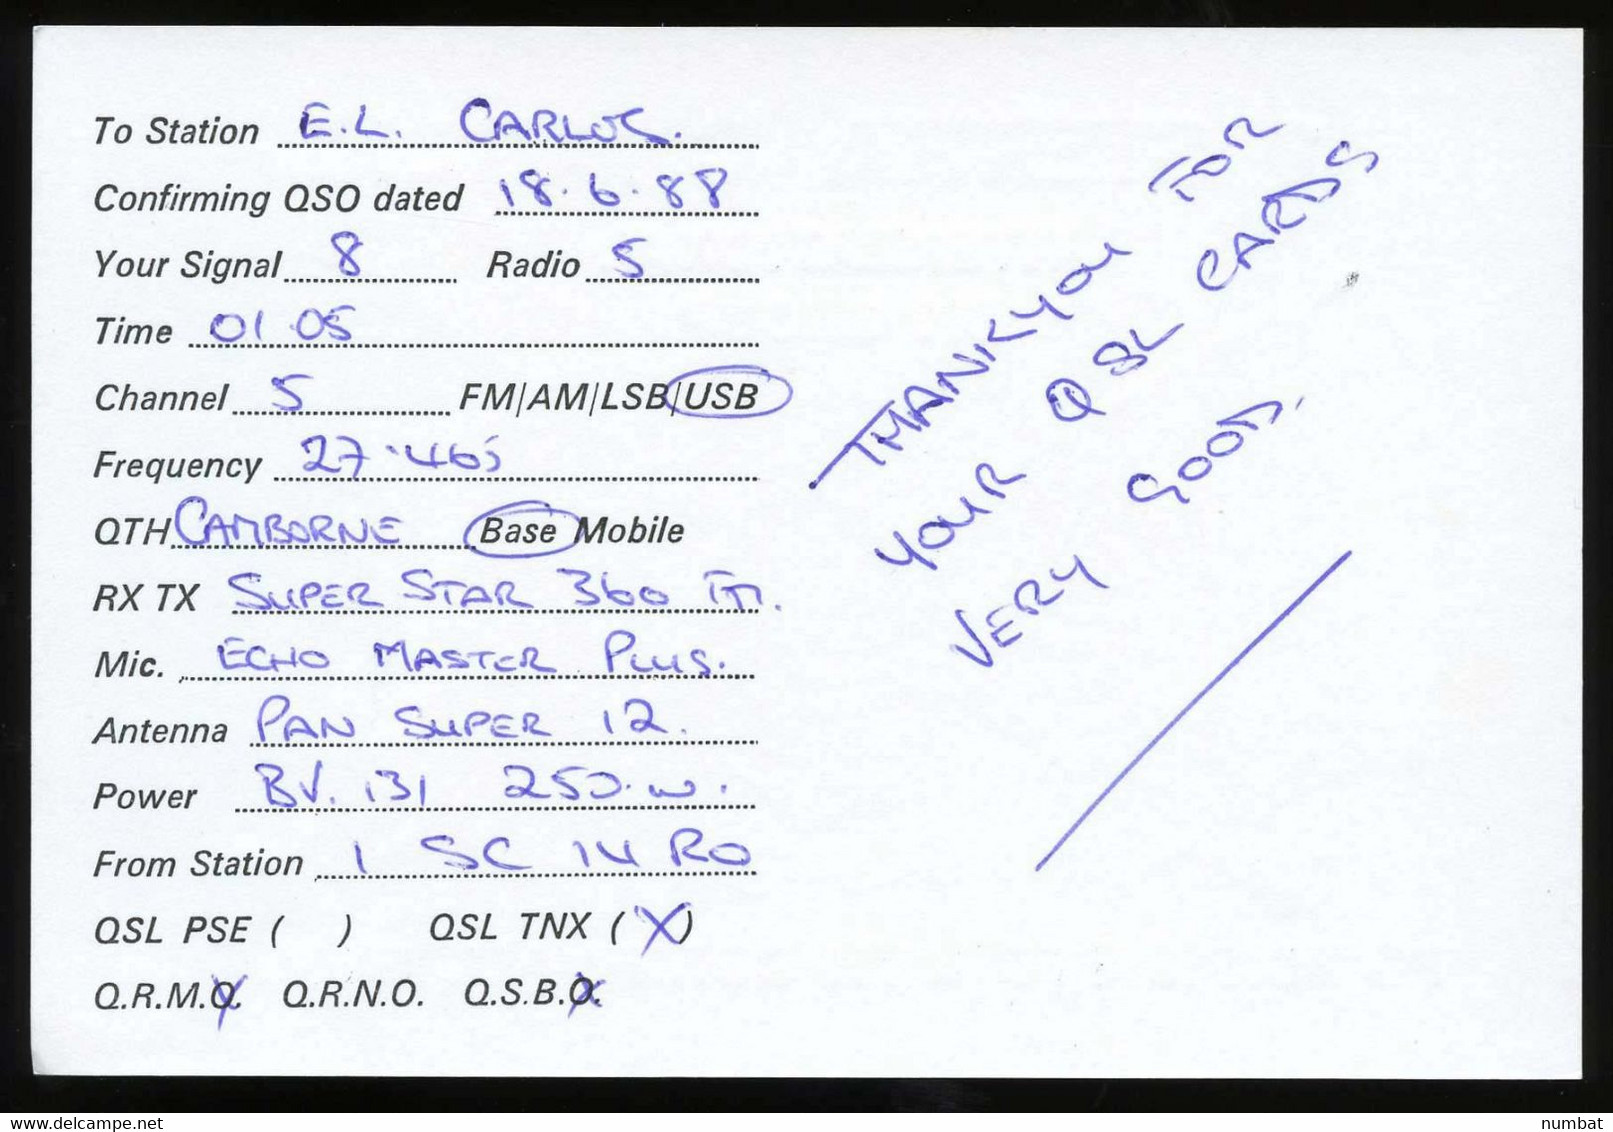 To Station E.L. CARLOS.
Confirming QSO dated 18.6.88
Your Signal 8 Radio 5
Time 01.05
Channel 5 FM/AM/LSB/USB
Frequency 27.465
QTH CAMBORNE Base Mobile
RX TX SUPER STAR 360 FM.
Mic. ECHO MASTER PLUS.
Antenna PAN SUPER 12.
Power BV. 131 250.W.
From Station 1 SC 14 RO
QSL PSE ( ) QSL TNX (X)
Q.R.M.O. Q.R.N.O. Q.S.B.O.
THANKYOU FOR
YOUR QSL CARDS
VERY GOOD.
www.delcampe.net
numbat